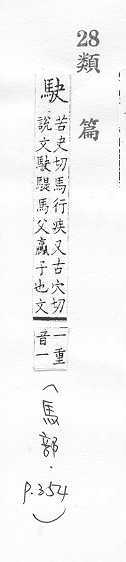 28 類篇
駃
苦夬切馬行疾又古穴切
說文駃騠馬父驘子也文
一重
音一
(馬部·p.354)